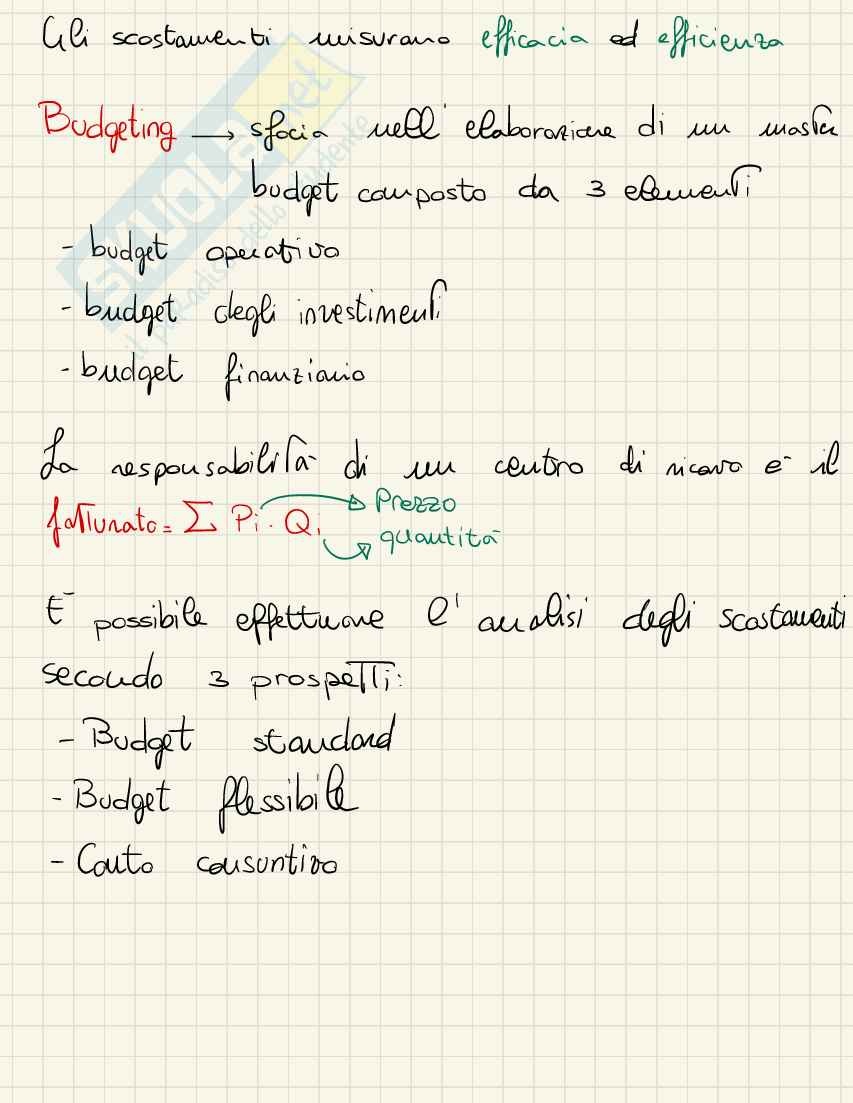 Gli scostamenti misurano efficacia ed efficienza
Budgeting → sfocia nell'elaborazione di un master
budget composto da 3 elementi
- budget operativo
- budget degli investimenti
- budget finanziario
La responsabilità di un centro di ricavo è il
fatturato = Σ Pi · Qi → Prezzo
→ quantità
È possibile effettuare l'analisi degli scostamenti
secondo 3 prospetti:
- Budget standard
- Budget flessibile
- Conto consuntivo
SKUOLA.net
il paradiso dello studente